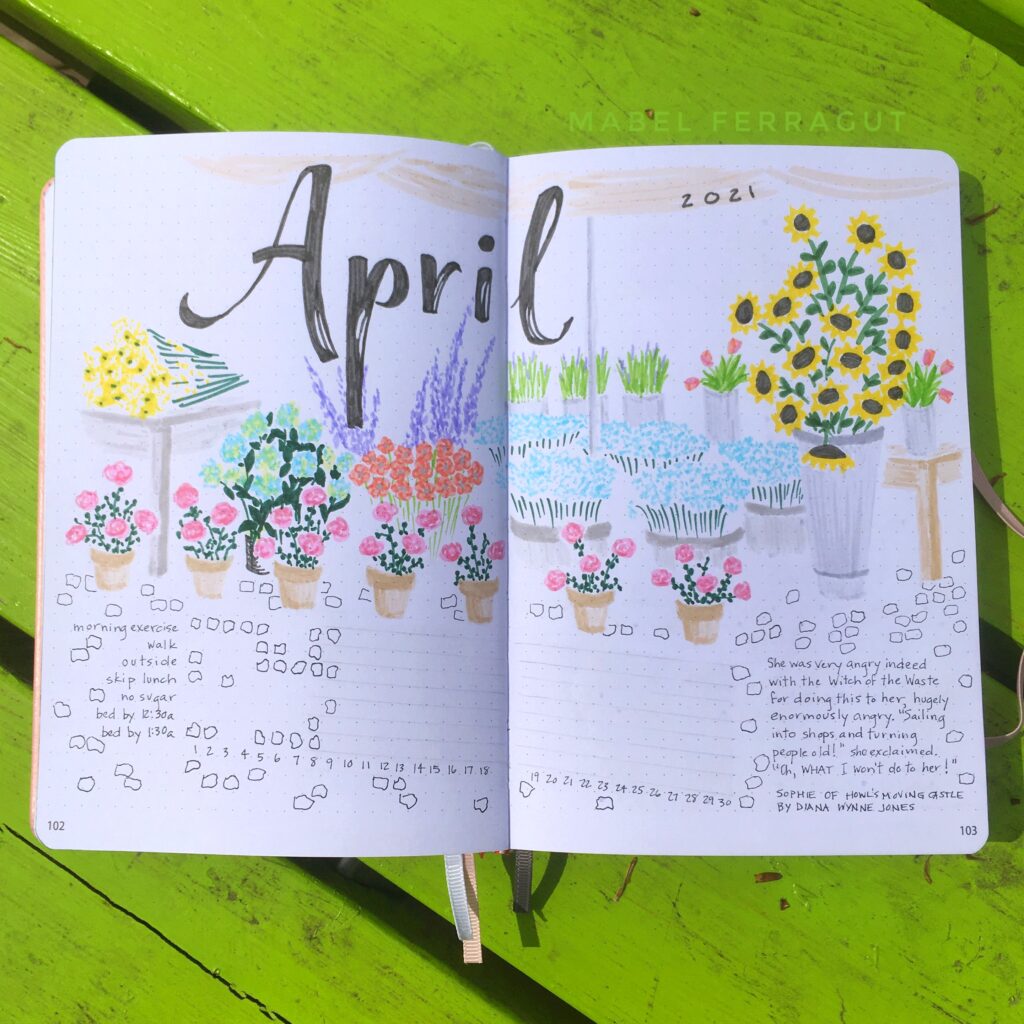 MABEL FERRAGUT
April
2021
morning exercise
walk
outside
skip lunch
no sugar
bed by 12:30a
bed by 1:30a
1 2 3 4 5 6 7 8 9 10 11 12 13 14 15 16 17 18
19 20 21 22 23 24 25 26 27 28 29 30
She was very angry indeed
with the Witch of the Waste
for doing this to her, hugely
enormously angry. "Sailing
into shops and turning
people old!" she exclaimed.
"Oh, WHAT I won't do to her!"
SOPHIE OF HOWL'S MOVING CASTLE
BY DIANA WYNNE JONES
102
103